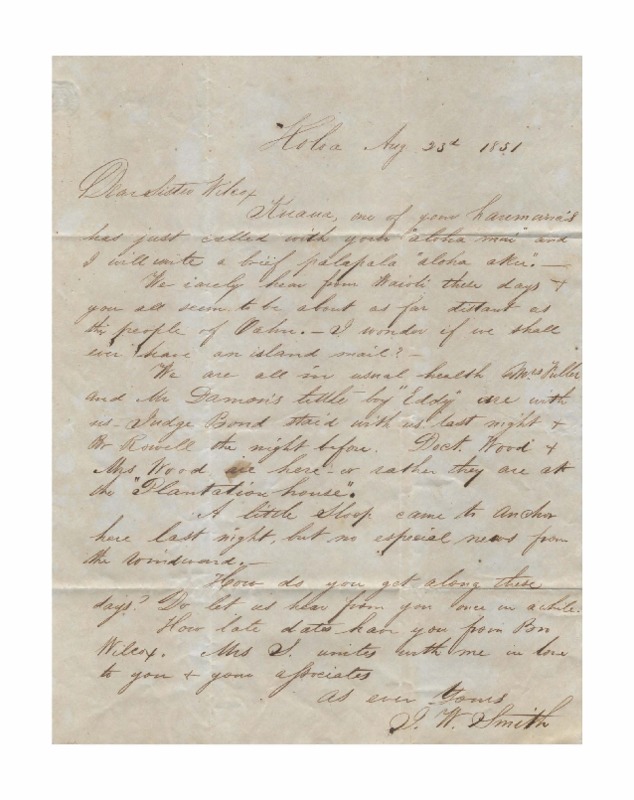 Koloa Aug 23d 1851
Dear Sister Wilcox
one of your
has just called with your "aloha mai" and
I will write a brief palapala "aloha aku". —
We rarely hear from Waioli these days &
you all seem to be about as far distant as
the people of Oahu. — I wonder if we shall
ever have an island mail? —
We are all in usual health Mrs
and Mr Damon's little boy "Eddy" are with
us - Judge Bond staid with us last night &
Br Rowell the night before. Doct. Wood &
Mrs Wood are here - or rather they are at
the "Plantation house".
A little Sloop came to anchor
here last night, but no especial news from
the windward. —
How do you get along these
days? Do let us hear from you once in a while.
How late dates have you from Br
Wilcox. Mrs S. unites with me in love
to you & your associates
As ever Yours
J. W. Smith